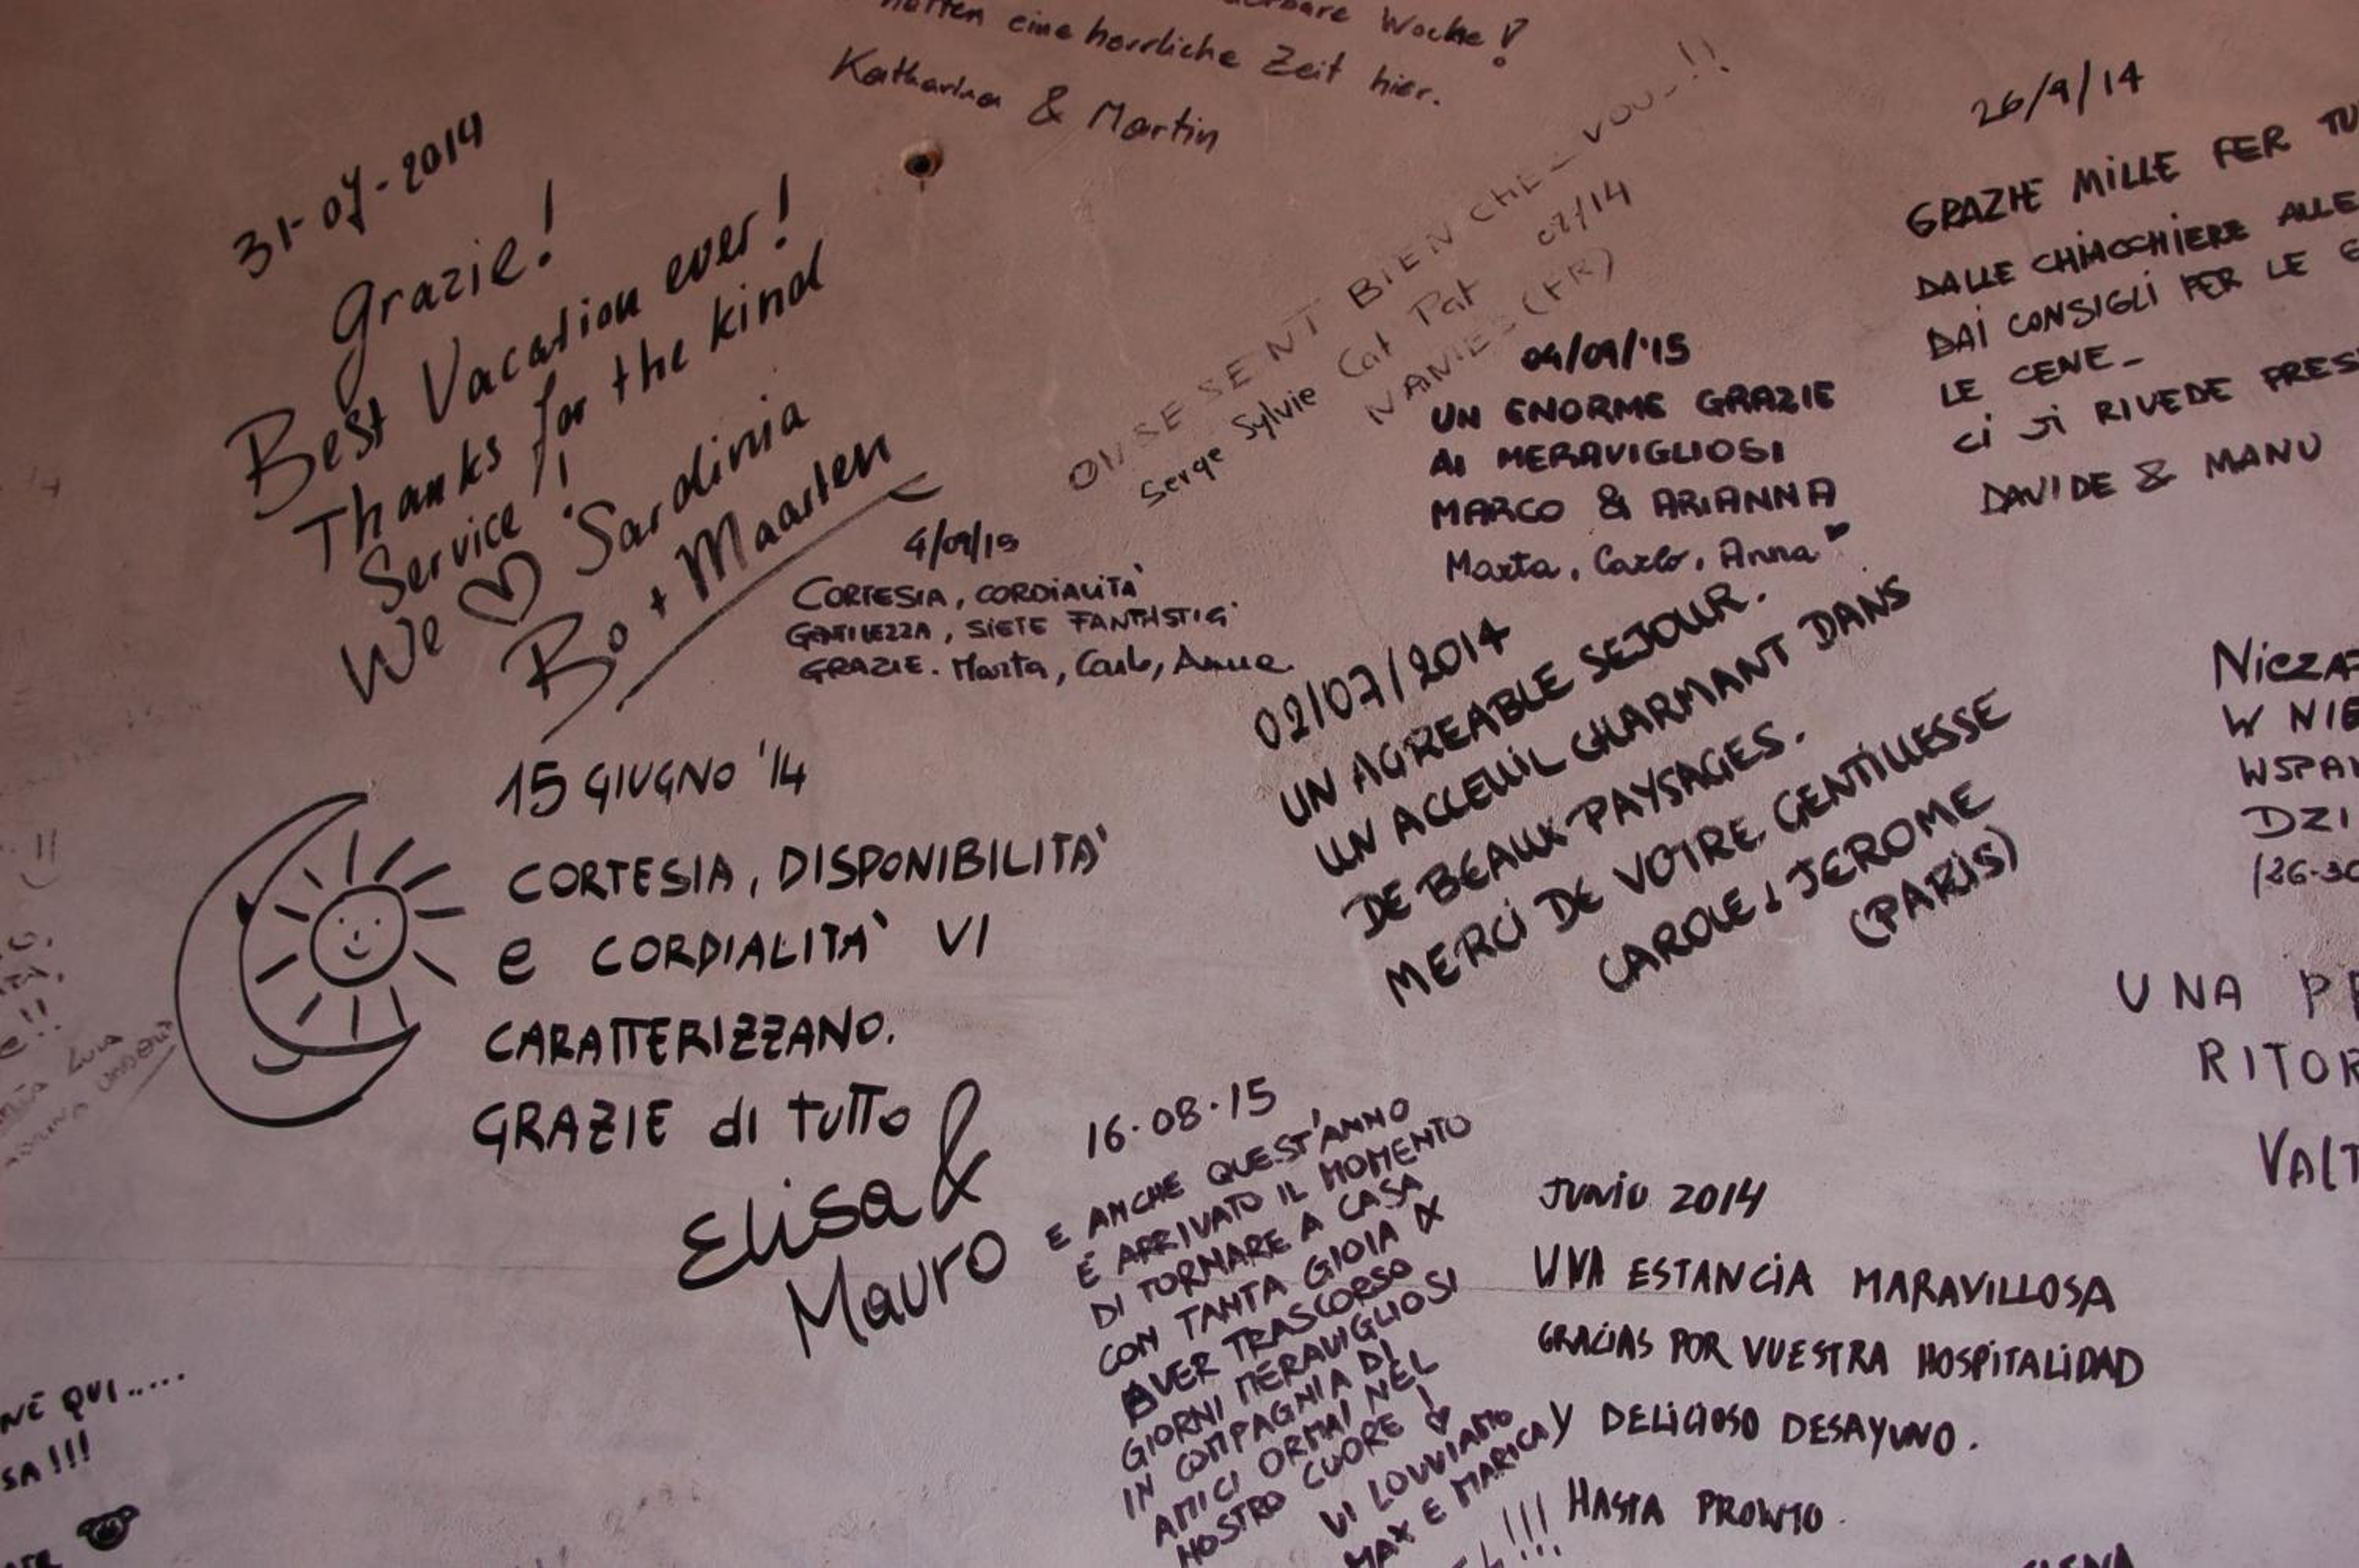 Woche!
hatten eine herrliche Zeit hier.
Katharina & Martin
31-07-2014
Grazie!
Best Vacation ever!
Thanks for the kind
Service!
We ♡ Sardinia
Bo + Maarten
ON SE SENT BIEN CHEZ VOUS!!
Serge Sylvie Cat Pat 07/14
(FR)
26/9/14
GRAZIE MILLE PER TU
DALLE CHIACCHIERE ALLE
DAI CONSIGLI PER LE
LE CENE_
CI SI RIVEDE PRES
DAVIDE & MANU
04/09/'15
UN ENORME GRAZIE
AI MERAVIGLIOSI
MARCO & ARIANNA
Marta, Carlo, Anna ♥
4/09/15
CORTESIA, CORDIALITA'
GENTILEZZA, SIETE FANTASTICI
GRAZIE. Marta, Carlo, Anna
02/07/2014
UN AGREABLE SEJOUR.
UN ACCEUIL CHARMANT DANS
DE BEAUX PAYSAGES.
MERCI DE VOTRE GENTILLESSE
CAROLE & JEROME
(PARIS)
15 GIUGNO '14
CORTESIA, DISPONIBILITA'
e CORDIALITA' VI
CARATTERIZZANO.
GRAZIE di TUTTO
Elisa &
Mauro
W NIE
WSPA
DZI
(26-30
UNA
RITOR
VALT
16.08.15
E ANCHE QUEST'ANNO
E' ARRIVATO IL MOMENTO
DI TORNARE A CASA
CON TANTA GIOIA X
AVER TRASCORSO
GIORNI MERAVIGLIOSI
IN COMPAGNIA DI
AMICI ORMAI NEL
NOSTRO CUORE!
♡
VI LOVVIAMO
MAX E MARICA
JUNIO 2014
UNA ESTANCIA MARAVILLOSA
GRACIAS POR VUESTRA HOSPITALIDAD
Y DELICIOSO DESAYUNO.
HASTA PRONTO.
NE QUI.....
SA!!!